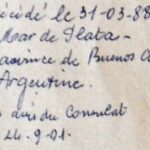 écédé le 31-03-88
Mar del Plata -
rovince de Buenos A
Argentine.
avis du Consulat
24-9-01.